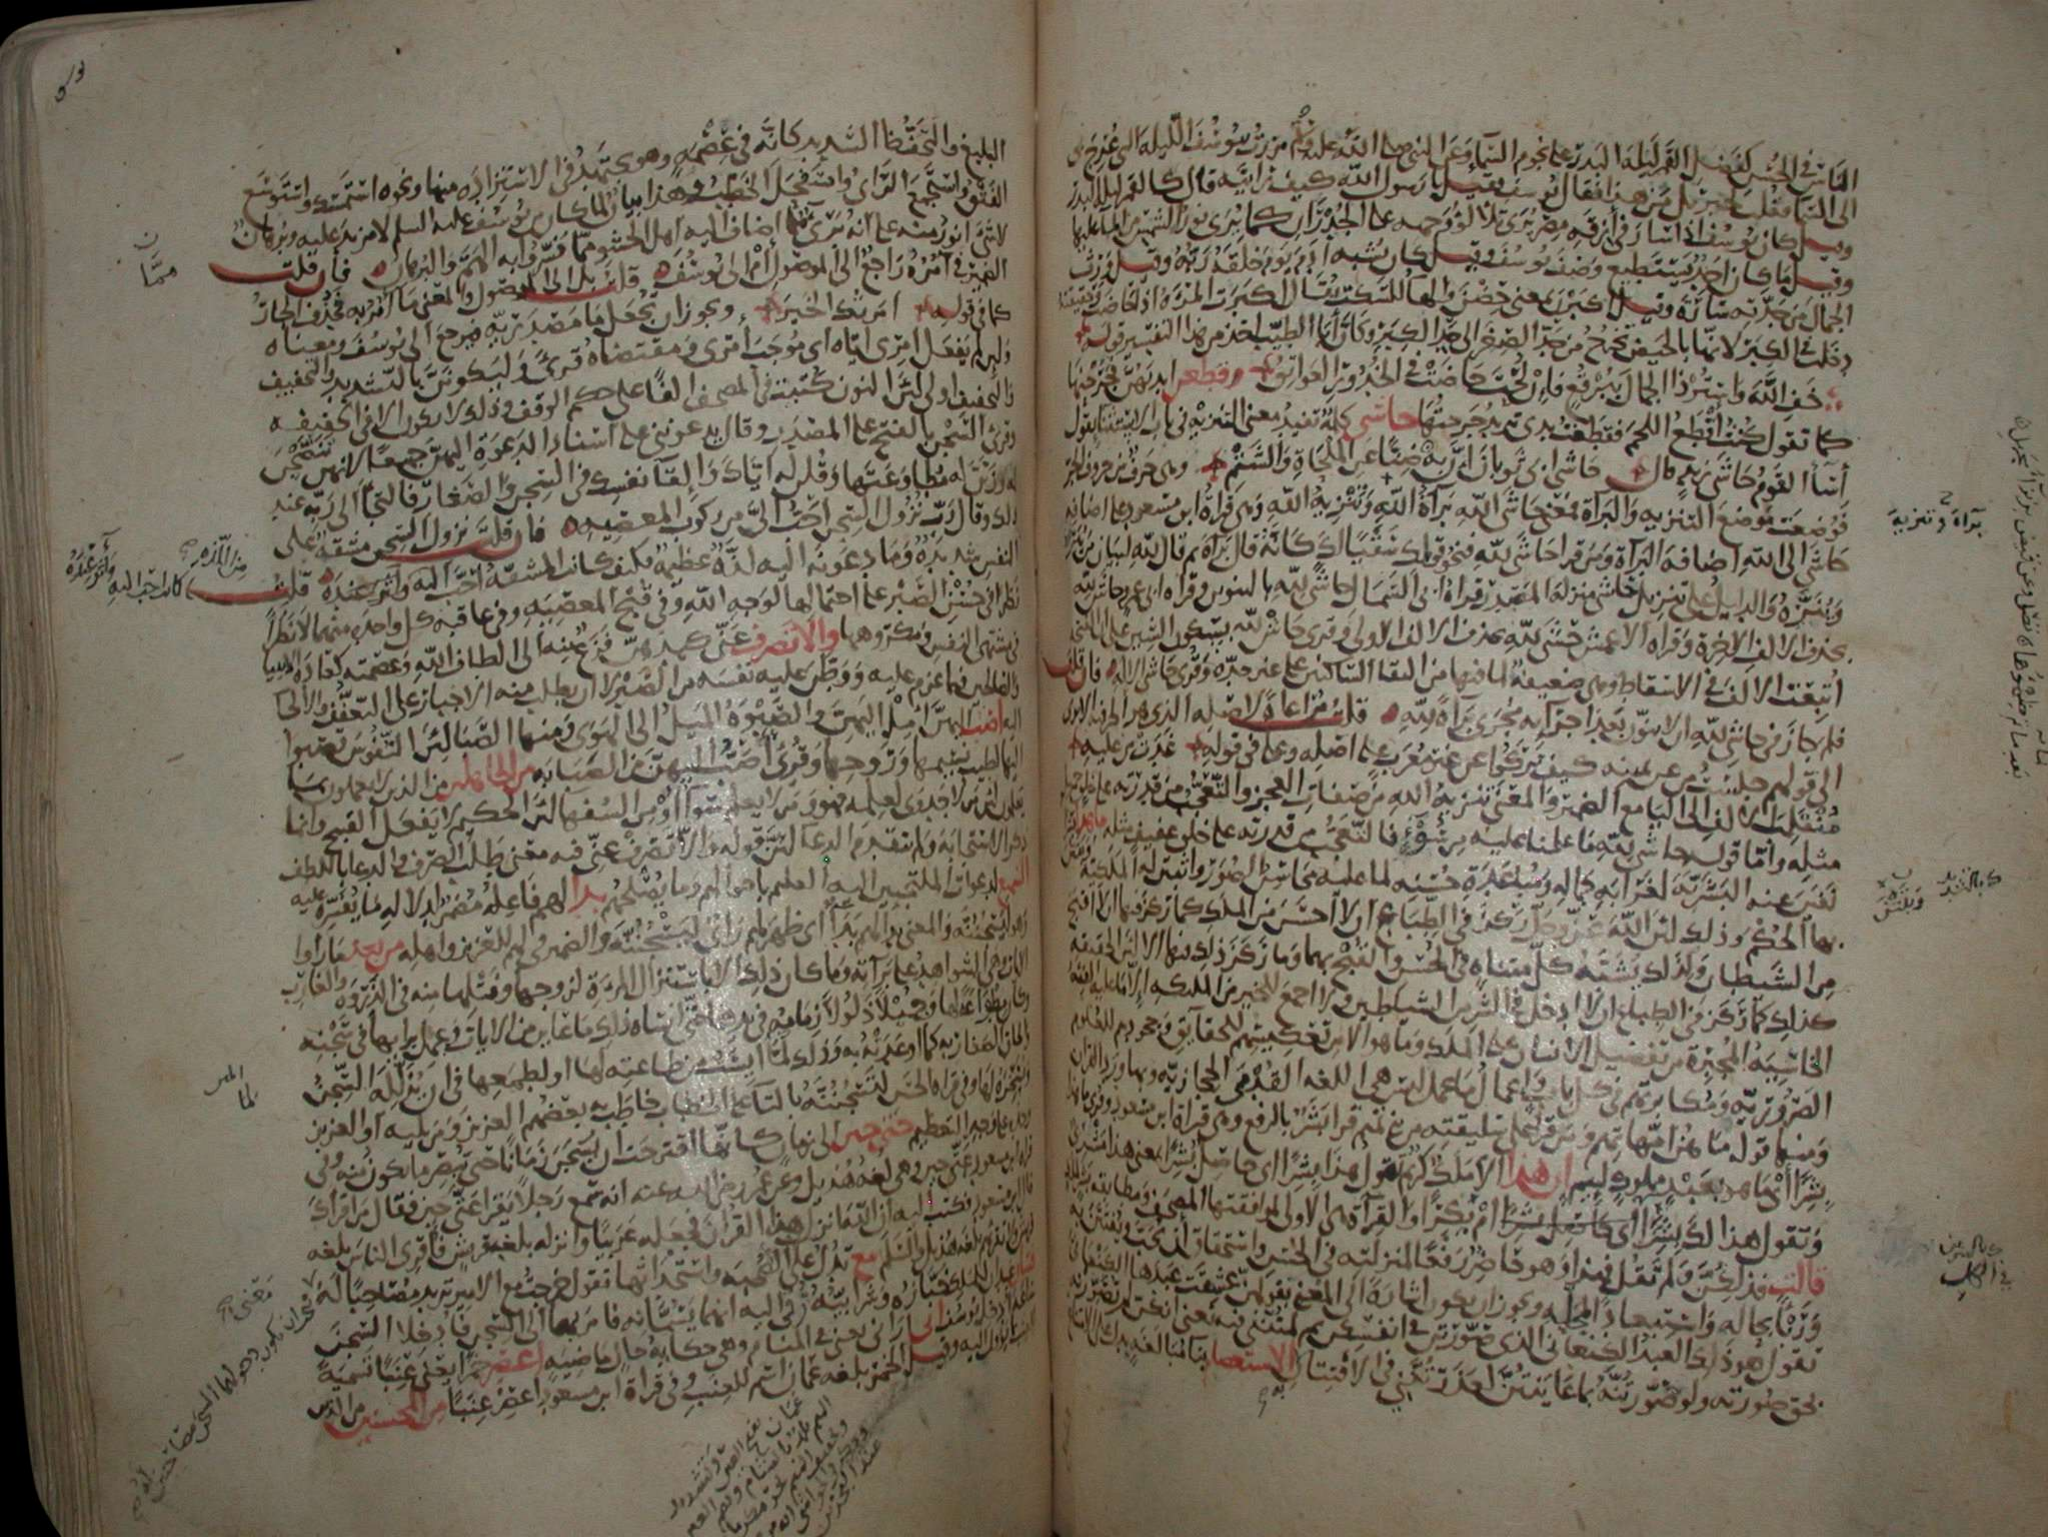 الناس في الحسن كفضل القمر ليلة البدر على نجوم السماء وعن النبي صلى الله عليه وسلم مررت بيوسف الليلة التي عرج بي
الى السماء فقلت لجبريل من هذا فقال يوسف فقيل يا رسول الله كيف رايته قال كالقمر ليلة البدر
وقيل كان يوسف اذا سار في أزقة مصر يرى تلألؤ وجهه على الجدران كما يرى نور الشمس من الماء عليها
وقيل ما كان احد يستطيع وصف يوسف وقيل كان يشبه آدم يوم خلقه ربه وقيل ورث
الجمال من جدته سارة وقيل اكبرن بمعنى حضن والهاء للسكت يقال اكبرت المرأة اذا حاضت وحقيقته
دخلت في الكبر لانها بالحيض تخرج من حد الصغر الى حد الكبر وكأن أبا الطيب اخذ من هذا التفسير قوله
خف الله واستر ذا الجمال ببرقع فان لحت حاضت في الخدور العواتق وقطعن ايديهن جرحنها
كما تقول كنت أقطع اللحم فقطعت يدي تريد جرحتها حاشى كلمة تفيد معنى التنزيه في باب الاستثناء تقول
أساء القوم حاشى زيد قال حاشى ابي ثوبان ان به ضنا عن الملحاة والشتم وهي حرف من حروف الجر
فوضعت موضع التنزيه والبراءة فمعنى حاشى الله براءة الله وتنزيه الله وهي قراءة ابن مسعود على اضافة
حاشى الى الله اضافة البراءة ومن قرا حاشى لله فنحو قولك سقيا لك كانه قال براءة ثم قال لله لبيان من يبرأ
وينزه والدليل على تنزيل حاشى منزلة المصدر قراءة ابي السمال حاشى لله بالتنوين وقراءة ابي عمرو حاش لله
بحذف الالف الاخرة وقراءة الاعمش حشى لله بحذف الالف الاولى وقرئ حاش لله بسكون الشين على ان الفتحة
اتبعت الالف في الاسقاط وهي ضعيفة لما فيها من التقاء الساكنين على غير حده وقرئ حاشى الاله فان قلت
فلم جاز في حاشى لله ان لا ينون بعد اجرائه مجرى براءة لله قلت مراعاة لاصله الذي هو الحرفية الا ترى
الى قولهم جلست من عن يمينه كيف تركوا عن غير معرب على اصله وعلى في قوله غدت من عليه
منقلب الالف الى الياء مع الضمير والمعنى تنزيه الله من صفات العجز والتعجب من قدرته على خلق جميل
مثله وأما قوله حاش لله ما علمنا عليه من سوء فالتعجب من قدرته على خلق عفيف مثله ما هذا بشرا
نفين عنه البشرية لغرابة جماله ومباعدة حسنه لما عليه محاسن الصور واثبتن له الملكية وبتتن
بها الحكم وذلك لان الله عز وجل ركز في الطباع ان لا احسن من الملك كما ركز فيها ان لا اقبح
من الشيطان ولذلك يشبه كل متناه في الحسن والقبح بهما وما ركز ذلك فيها الا لان الحقيقة
كذلك كما ركز في الطباع ان لا ادخل في الشر من الشياطين ولا اجمع للخير من الملائكة الا ما عليه الفئة
الخاسئة المجبرة من تفضيل الانسان على الملك وما هو الا من تعكيسهم للحقايق وجحودهم للعلوم
الضرورية ومكابرتهم في كل باب واعمال ما عمل ليس هي اللغة القدمى الحجازية وبها ورد القرآن
ومنها قوله ما هن امهاتهم ومن قرأ على سليقته من بني تميم قرأ بشر بالرفع وهي قراءة ابن مسعود وقرئ ما هذا
بشرى أي ما هو بعبد مملوك لئيم ان هذا الا ملك كريم تقول هذا بشرى اي حاصل بشرى بمعنى هذا مشترى
وتقول هذا لك بشرى ام بكرى والقراءة هي الاولى لموافقتها المصحف ومطابقة بشر لملك
قالت فذلكن ولم تقل فهذا وهو حاضر رفعا لمنزلته في الحسن واستحقاق ان يحب ويفتتن به
وربئا بحاله واستبعادا لمحله ويجوز ان يكون اشارة الى المعني بقولهن عشقت عبدها الكنعاني
تقول هو ذلك العبد الكنعاني الذي صورتن في انفسكن ثم لمتنني فيه يعني انكن لم تصورنه
بحق صورته ولو صورتنه بما عاينتن لعذرتنني في الافتتان به الاستعصام بناء مبالغة يدل على الامتناع
براءة وتنزيه
البليغ والتحفظ الشديد كانه في عصمة وهو مجتهد في الاستزادة منها ونحوه استمسك واستوسع
الفتق واستجمع الراي واستفحل الخطب وهذا بيان لما كان من يوسف عليه السلم لا مزيد عليه وبرهان
لا شئ انور منه على انه بريء مما اضاف اليه اهل الحشو مما فسروا به الهم والبرهان فان قلت
الضمير في آمره راجع الى الموصول أم الى يوسف قلت بل الى الموصول والمعنى ما آمر به فحذف الجار
كما في قوله امرتك الخير ويجوز ان تجعل ما مصدرية فيرجع الى يوسف ومعناه
ولئن لم يفعل امري اياه اي موجب أمري ومقتضاه قرئ وليكونن بالتشديد والتخفيف
والتخفيف اولى لان النون كتبت في المصحف الفا على حكم الوقف وذلك لا يكون الا في الخفيفة
وقرئ السجن بالفتح على المصدر وقال يدعونني على اسناد الدعوة اليهن جميعا لانهن تنصحن
له وزين له مطاوعتها وقلن له اياك والقاء نفسك في السجن والصغار فالتجأ الى ربه عند
ذلك وقال رب نزول السجن احب الي من ركوب المعصية فان قلت نزول السجن مشقة على
النفس شديدة وما دعونه اليه لذة عظيمة فكيف كانت المشقة احب اليه وآثر عنده قلت
نظرا في حسن الصبر على احتمالها لوجه الله وفي قبح المعصية وفي عاقبة كل واحدة منهما لا نظرا
في مشتهى النفس ومكروهها والا تصرف عني كيدهن فزع منه الى الطاف الله وعصمته كعادة الانبياء
والصالحين فيما عزم عليه ووطن عليه نفسه من الصبر لا ان يطلب منه الاجبار على التعفف والالجاء
اليه أصب اليهن أمل اليهن والصبوة الميل الى الهوى ومنها الصبا لان النفوس تصبوا
اليها لطيب نسيمها وروحها وقرئ أصب اليهن من الصبابة من الجاهلين من الذين لا يعملون بما
يعلمون لان من لا جدوى لعلمه فهو ومن لا يعلم سواء او من السفهاء لان الحكيم لا يفعل القبيح وانما
ذكر الاستجابة ولم يتقدم الدعاء لان قوله والا تصرف عني فيه معنى طلب الصرف والدعاء باللطف
السميع لدعوات الملتجيين اليه العليم باحوالهم وما يصلحهم بدا لهم فاعله مضمر لدلالة ما يفسره عليه
وهو ليسجننه والمعنى بدا لهم بداء اي ظهر لهم رأي ليسجننه والضمير في لهم للعزيز واهله من بعد ما راوا
الآيات وهي الشواهد على براءته وما كان ذلك الا باستنزال المراة لزوجها وفتلها منه في الذروة والغارب
وكان مطواعة لها وجميلا ذلولا زمامه في يدها حتى انساه ذلك ما عاين من الايات وعمل برايها في سجنه
والحاق الصغار به كما اوعدته به وذلك لما ايست من طاعته لها او لطمعها في ان يذلله السجن
ويسخره لها وفي قراءة الحسن لتسجننه بالتاء على الخطاب خاطب به بعضهم العزيز ومن يليه او العزيز
وحده على وجه التعظيم حتى حين الى زمان كانها اقترحت ان يسجن زمانا حتى تبصر ما يكون منه وفي
قراءة ابن مسعود عتى حين وهي لغة هذيل وعن عمر رضي الله عنه انه سمع رجلا يقرا عتى حين فقال من اقراك
قال ابن مسعود فكتب اليه ان الله انزل هذا القرآن فجعله عربيا وانزله بلغة قريش فأقرئ الناس بلغة
قريش ولا تقرئهم بلغة هذيل والسلم مع تدل على الصحبة واستحداثها تقول خرجت مع الامير تريد مصاحبا له
فتيان عبدان للملك خبازه وشرابيه رقي اليه انهما يسمانه فامر بهما الى السجن فأدخلا السجن
ساعة ادخل يوسف اني اراني يعني في المنام وهي حكاية حال ماضية اعصر خمرا يعني عنبا تسمية
للعنب بما يؤول اليه وقيل الخمر بلغة عمان اسم للعنب وفي قراءة ابن مسعود اعصر عنبا من المحسنين من الذين